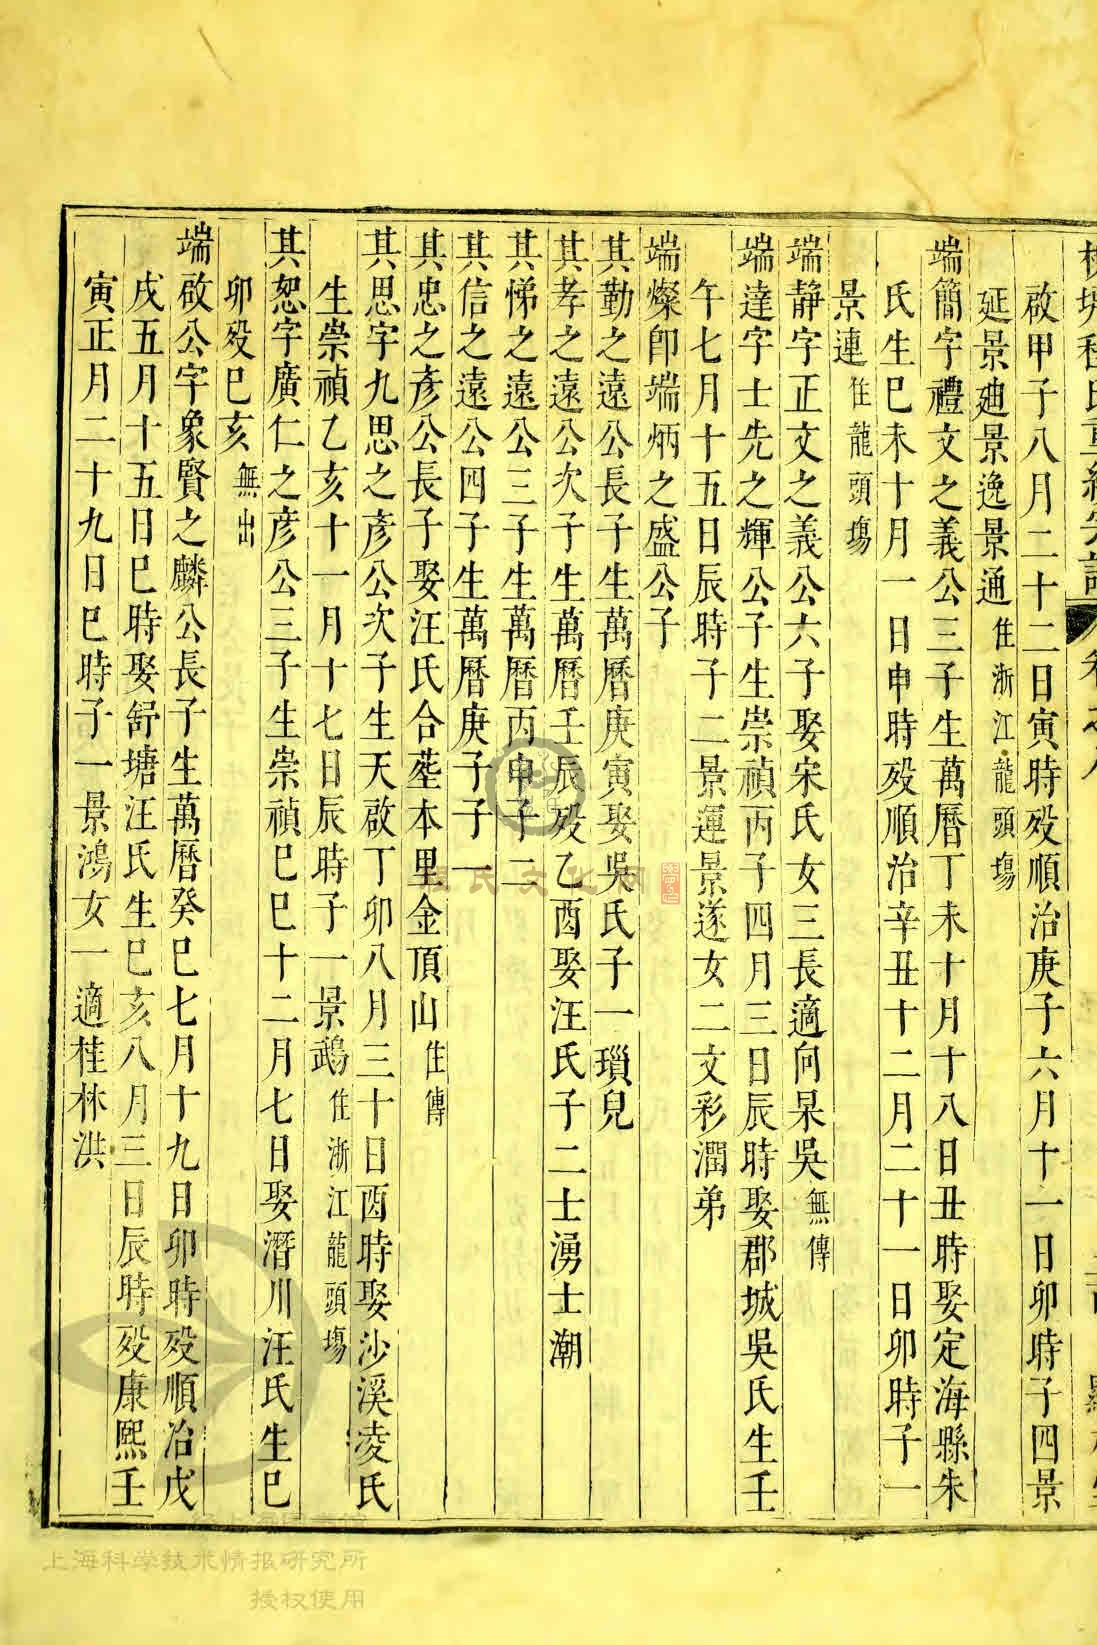 啟甲子八月二十二日寅時歿順治庚子六月十一日卯時子四景
延景廸景逸景通住浙江龍頭塲
端簡字禮文之義公三子生萬曆丁未十月十八日丑時娶定海縣朱
氏生巳未十月一日申時歿順治辛丑十二月二十一日卯時子一
景連住龍頭塲
端靜字正文之義公六子娶宋氏女三長適向杲吳無傳
端達字士先之輝公子生崇禎丙子四月三日辰時娶郡城吳氏生壬
午七月十五日辰時子二景運景遂女二文彩潤弟
端燦即端炳之盛公子
其勤之遠公長子生萬曆庚寅娶吳氏子一瑣兒
其孝之遠公次子生萬曆壬辰歿乙酉娶汪氏子二士湧士潮
其悌之遠公三子生萬曆丙申子二
其信之遠公四子生萬曆庚子子一
其忠之彥公長子娶汪氏合塟本里金頂山住傳
其思字九思之彥公次子生天啟丁卯八月三十日酉時娶沙溪凌氏
生崇禎乙亥十一月十七日辰時子一景鵡住浙江龍頭塲
其恕字廣仁之彥公三子生崇禎巳巳十二月七日娶潛川汪氏生巳
卯歿巳亥無出
端啟公字象賢之麟公長子生萬曆癸巳七月十九日卯時歿順治戊
戌五月十五日巳時娶舒塘汪氏生巳亥八月三日辰時歿康熙壬
寅正月二十九日巳時子一景鴻女一適桂林洪
程氏文化网
上海科学技术情报研究所
授权使用